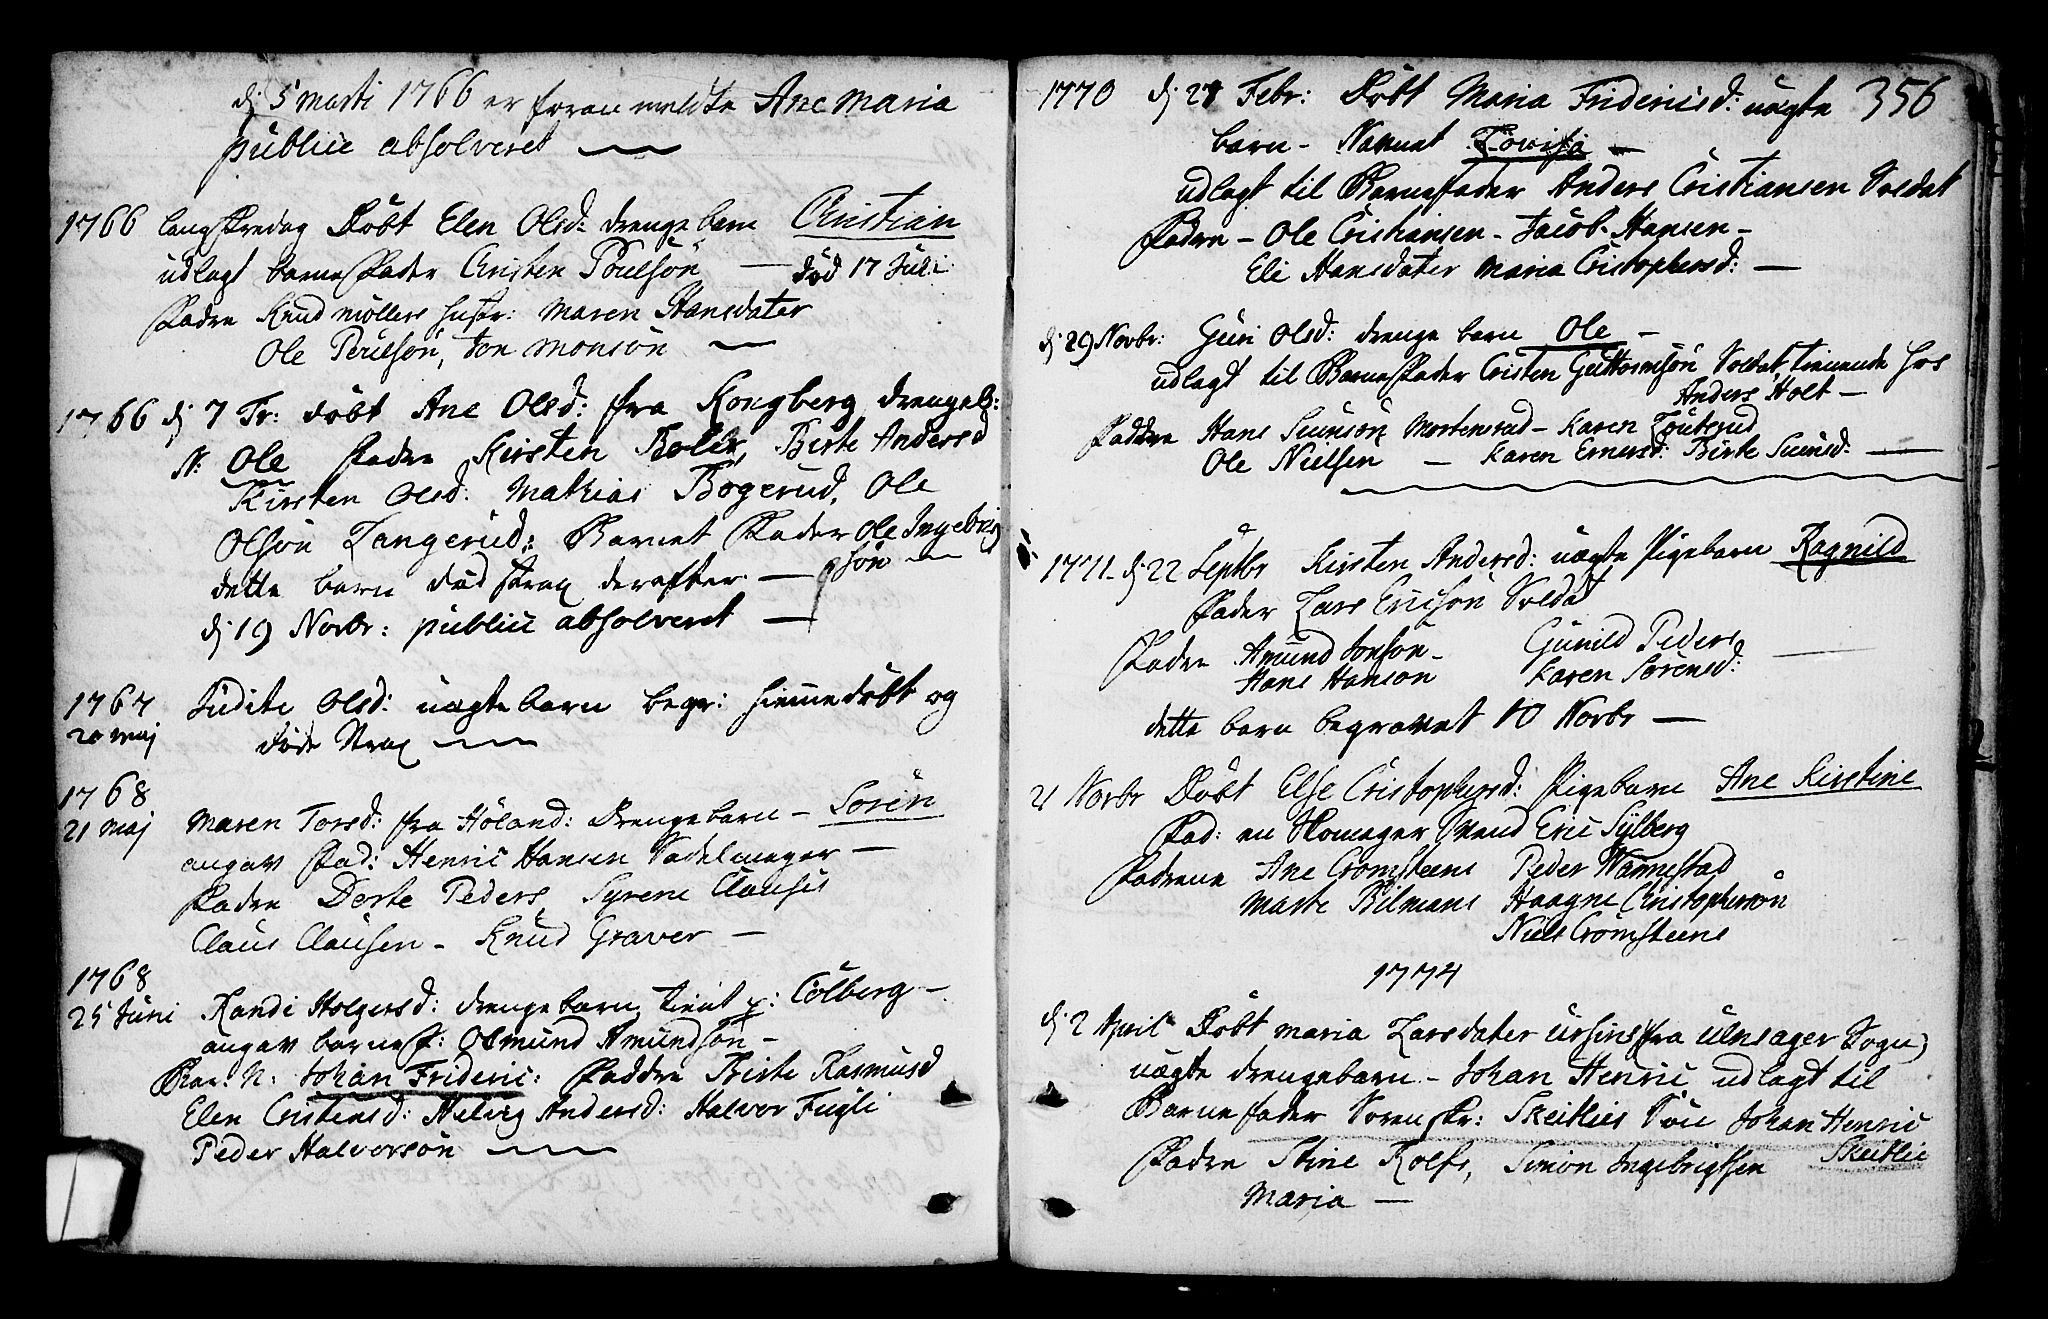 dj 5 Marti 1766 er foranmeldte Ane Maria
publice absolveret —
1766 langfredag Døbt Elen Olsd: drengebarn Christian
udlagt barnefader Cristen Poulsøn — død 17 Juli
Fadre Knud Møllers hustr: Maren Hansdater
Ole Poulsøn, Jon Monsøn —
1766 dj 7 Tr: døbt Ane Olsd: fra Kongberg drengeb:
N: Ole Fadre Kirsten Boler, Birte Andersd
Kirsten Olsd: Mathias Bogerud, Ole
Olsøn Langerud: Barnet Fader Ole Ingebrig
søn —
dette barn død strax derefter —
dj 19 Novbr: publice absolveret —
1767 Judite Olsd: uægte barn begr: hiemmedøbt og
20 Maj døde strax —
1768
21 Maj Maren Torsd: fra Høland: Drengebarn — Sørén
angav Fad: Henric Hansen Sadelmager —
Fadre Dorte Peders Syrene Clausis
Claus Clausen - Knud Graver —
1768
25 Juni Randi Holgersd: drengebarn, tient p: Cölberg —
angav barnef: Osmund Amundsøn —
Bar: N: Johan Frideric: Faddre Birte Rasmusd
Elen Cristensd: Helvig Andersd: Halvor Fugli
Peder Halvorsøn —
356
1770 dj 27 Febr: Døbt Maria Fridericsd: uægte
barn - Navnet Lovisa —
udlagt til Barnefader Anders Cristiansen Soldat
Fadre - Ole Cristiansen - Jacob Hansen -
Eli Hansdater Maria Cristophersd: —
dj 29 Novbr: Guri Olsd: drenge barn Ole —
udlagt til Barnefader Cristen Guttormsøn Soldat, tienende hos
Anders Holt —
Faddre Hans Svensøn Mortensrud - Karen Louterud
Ole Nielsen — Karen Ernersd: Birte Svensd: —
1771 - dj 22 Septbr Kirsten Andersd: uægte Pigebarn Ragnild
Fader Lars Ericsøn Soldat
Fadre Amund Jonsøn - Gunild Peders
Hans Hansøn Karen Sørensd: —
dette barn begravet 10 Novbr —
21 Novbr Døbt Else Cristophersd: Pigebarn Ane Kirstine
Fad: en Skomager Svend Eric Sylberg
Fadrene Ane Cromsteens Peder Wannestad
Marte Bilmans Haagne Christophersøn
Niels Cromsteens
1774
dj 2 April Døbt Maria Larsdater Ursins (fra Ulnsager Sogn)
uægte drengebarn - Johan Henric udlagt til
Barnefader Soren skr: Skeitlies Søn Johan Henric
Skeitlie
Fadre Stine Rolfs, Simon Ingebrigtsen
Maria —